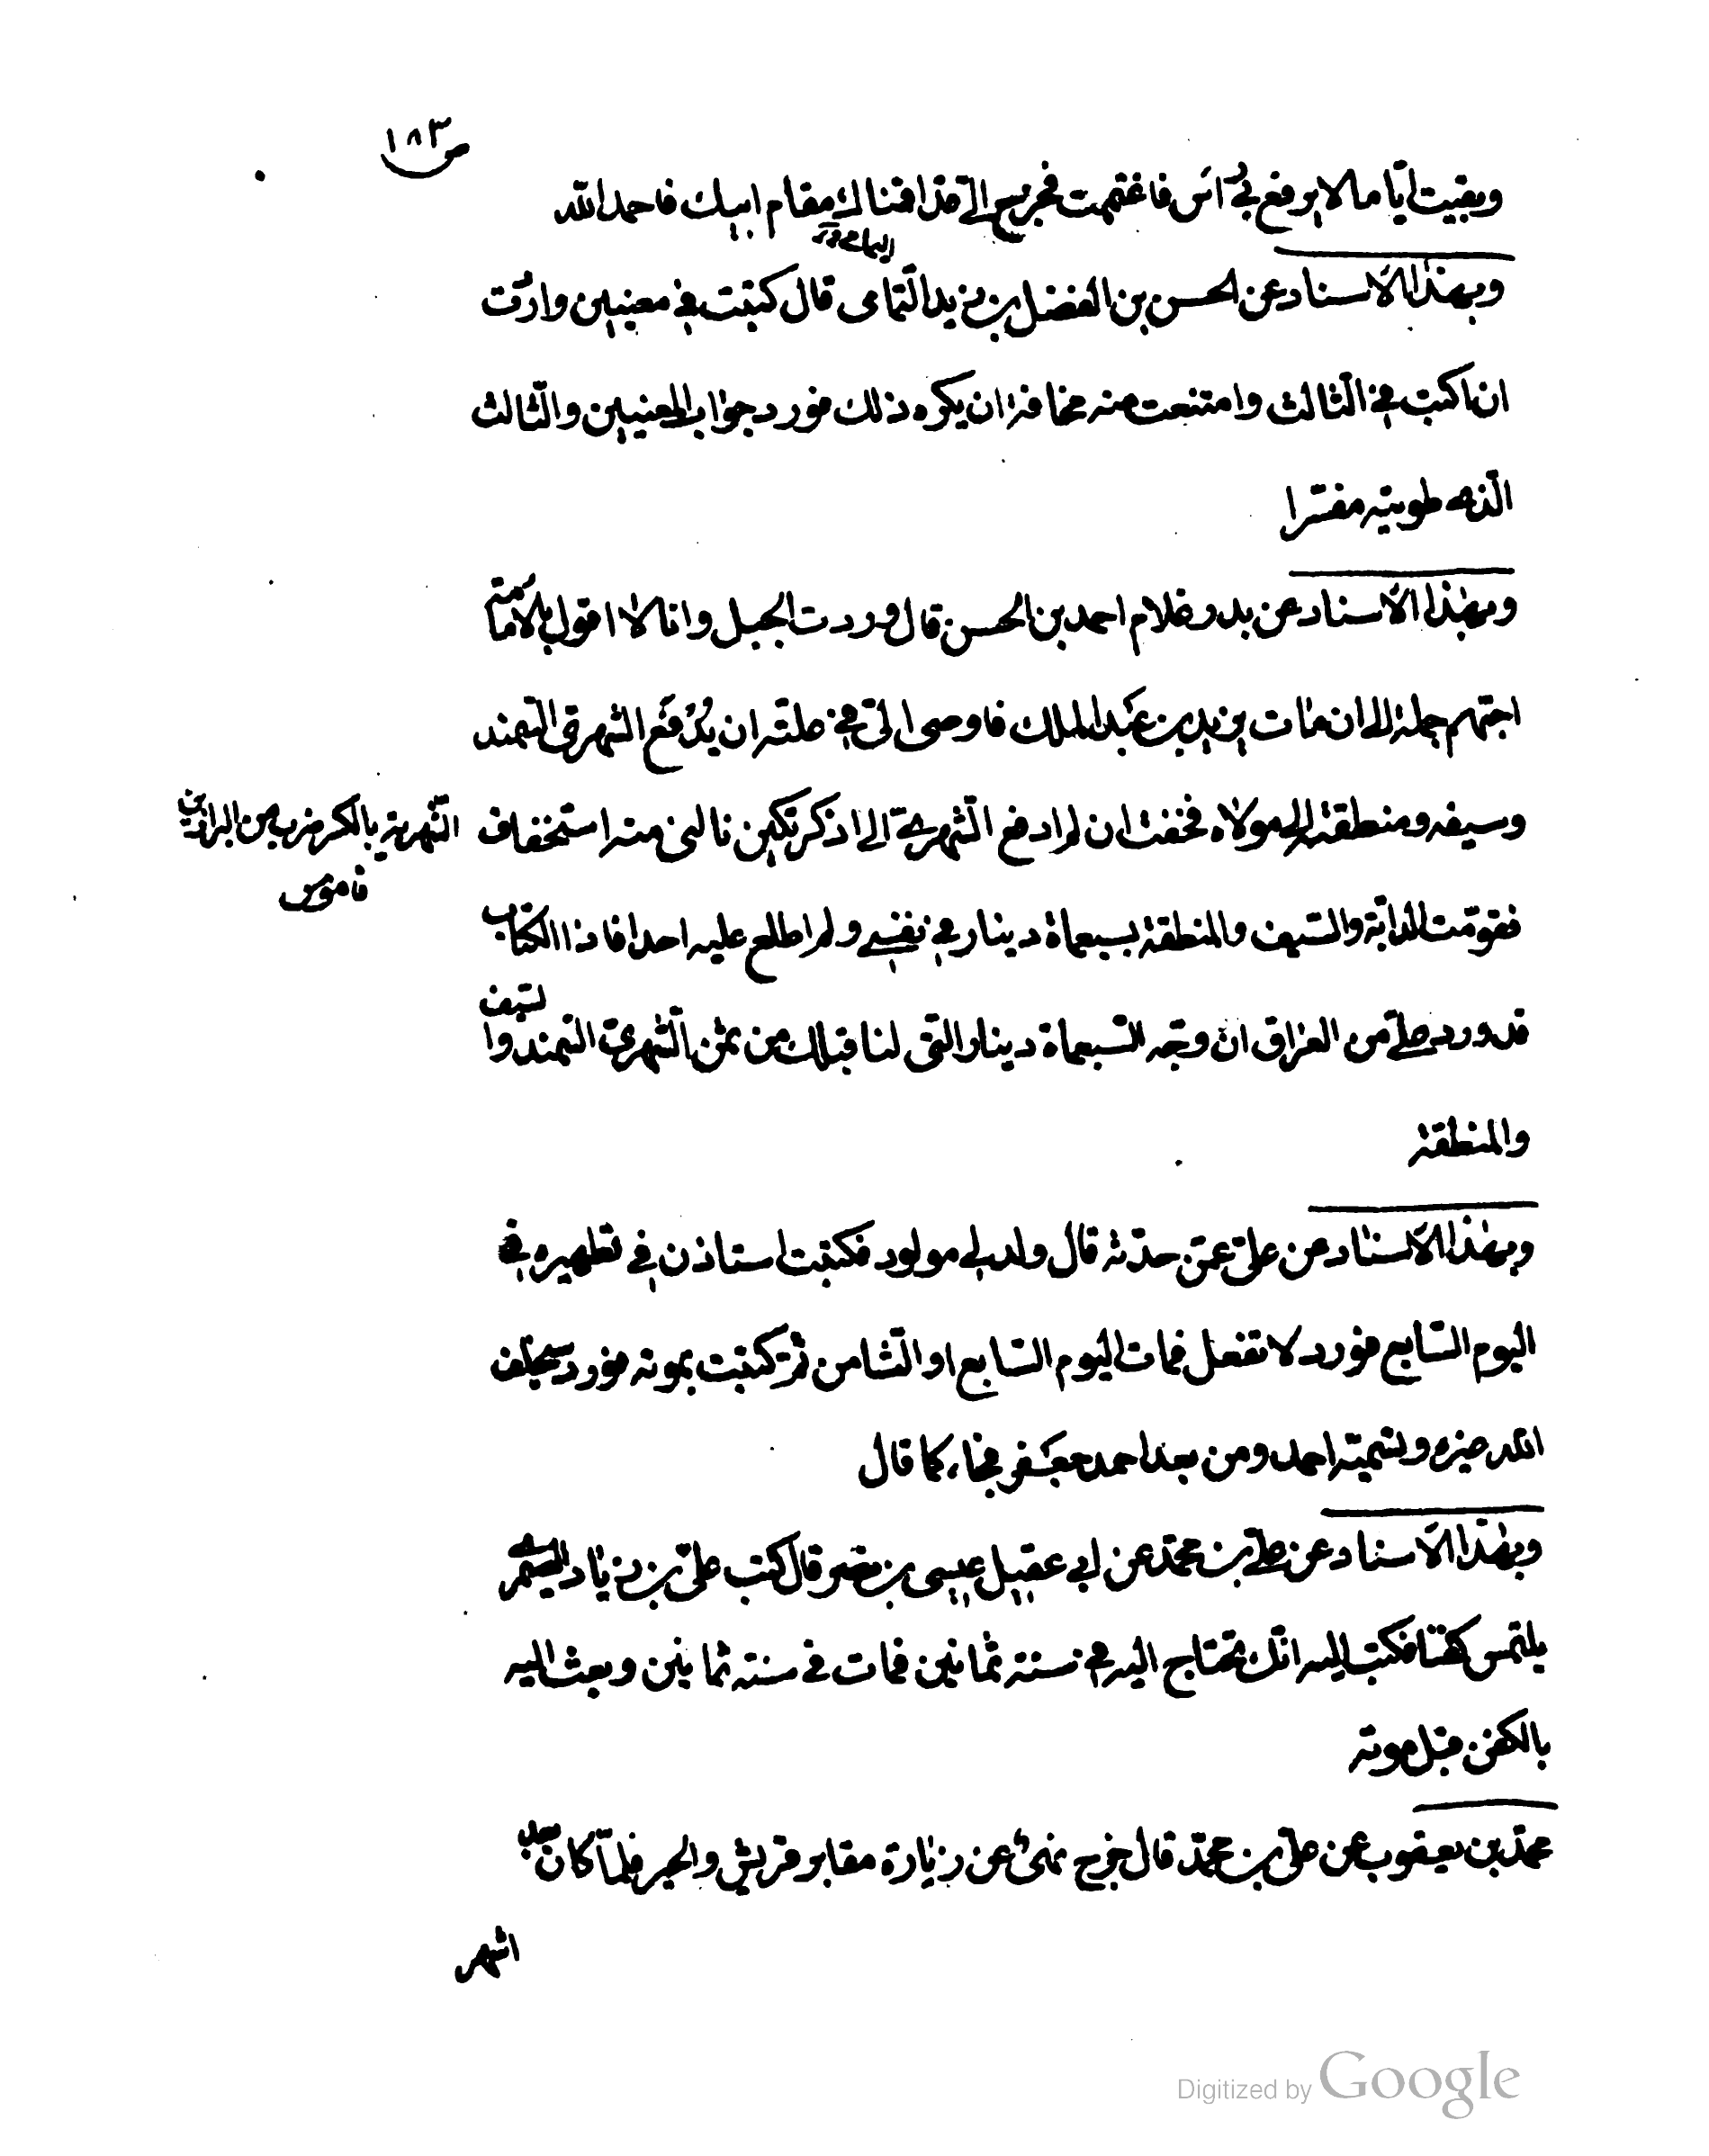 ص ١٨٣
وبقيت أيّاما لا يرفع بي رأس فاغتممت فخرج إليّ قد أقمناك مقام أبيك فاحمد الله
وبهذا الاسناد عن الحسن بن الفضل بن يزيد اليماني قال كتبت في معنيين واردت
ان اكتب في الثالث وامتنعت منه مخافة ان يكره ذلك فورد جواب المعنيين والثالث
الذي طويته مفسّرا
وبهذا الاسناد عن بدر غلام احمد بن الحسن قال وردت الجبل وانا لا اقول بالامامة
احبّهم جملة الى ان مات يزيد بن عبد الملك فاوصى الىّ في علته ان يدفع الشهرى السمند
وسيفه ومنطقته الى مولاه فخفت ان لم ادفع الشهري الى اذكوتكين نالنى منه استخفاف
الشهرية بالكسر ضرب من البراذين
قاموس
فقوّمت الدابّة والسيف والمنطقة بسبعمائة دينار في نفسي ولم اطلع عليه احدا فاذا الكتاب
قد ورد عليّ من العراق ان وجّه السبعمائة دينار التى لنا قبلك من ثمن الشهرى السمند والسيف
والمنطقة
وبهذا الاسناد عن علىّ عمّن حدّثه قال ولد لي مولود فكتبت استاذن في تطهيره في
اليوم السابع فورد لا تفعل فمات اليوم السابع او الثامن ثم كتبت بموته فورد سيخلف
الله غيره وتسمّيه احمد ومن بعد احمد جعفر فجاء كما قال
وبهذا الاسناد عن علي بن محمّد عن ابي عقيل عيسى بن نصر قال كتب علىّ بن زياد الصيمرى
يلتمس كفنا فكتب اليه انّك تحتاج اليه في سنة ثمانين فمات في سنة ثمانين وبعث اليه
بالكفن قبل موته
محمّد بن يعقوب عن علىّ بن محمّد قال خرج نهى عن زيارة مقابر قريش والحير فلمّا كان بعد
اشهر
Digitized by Google